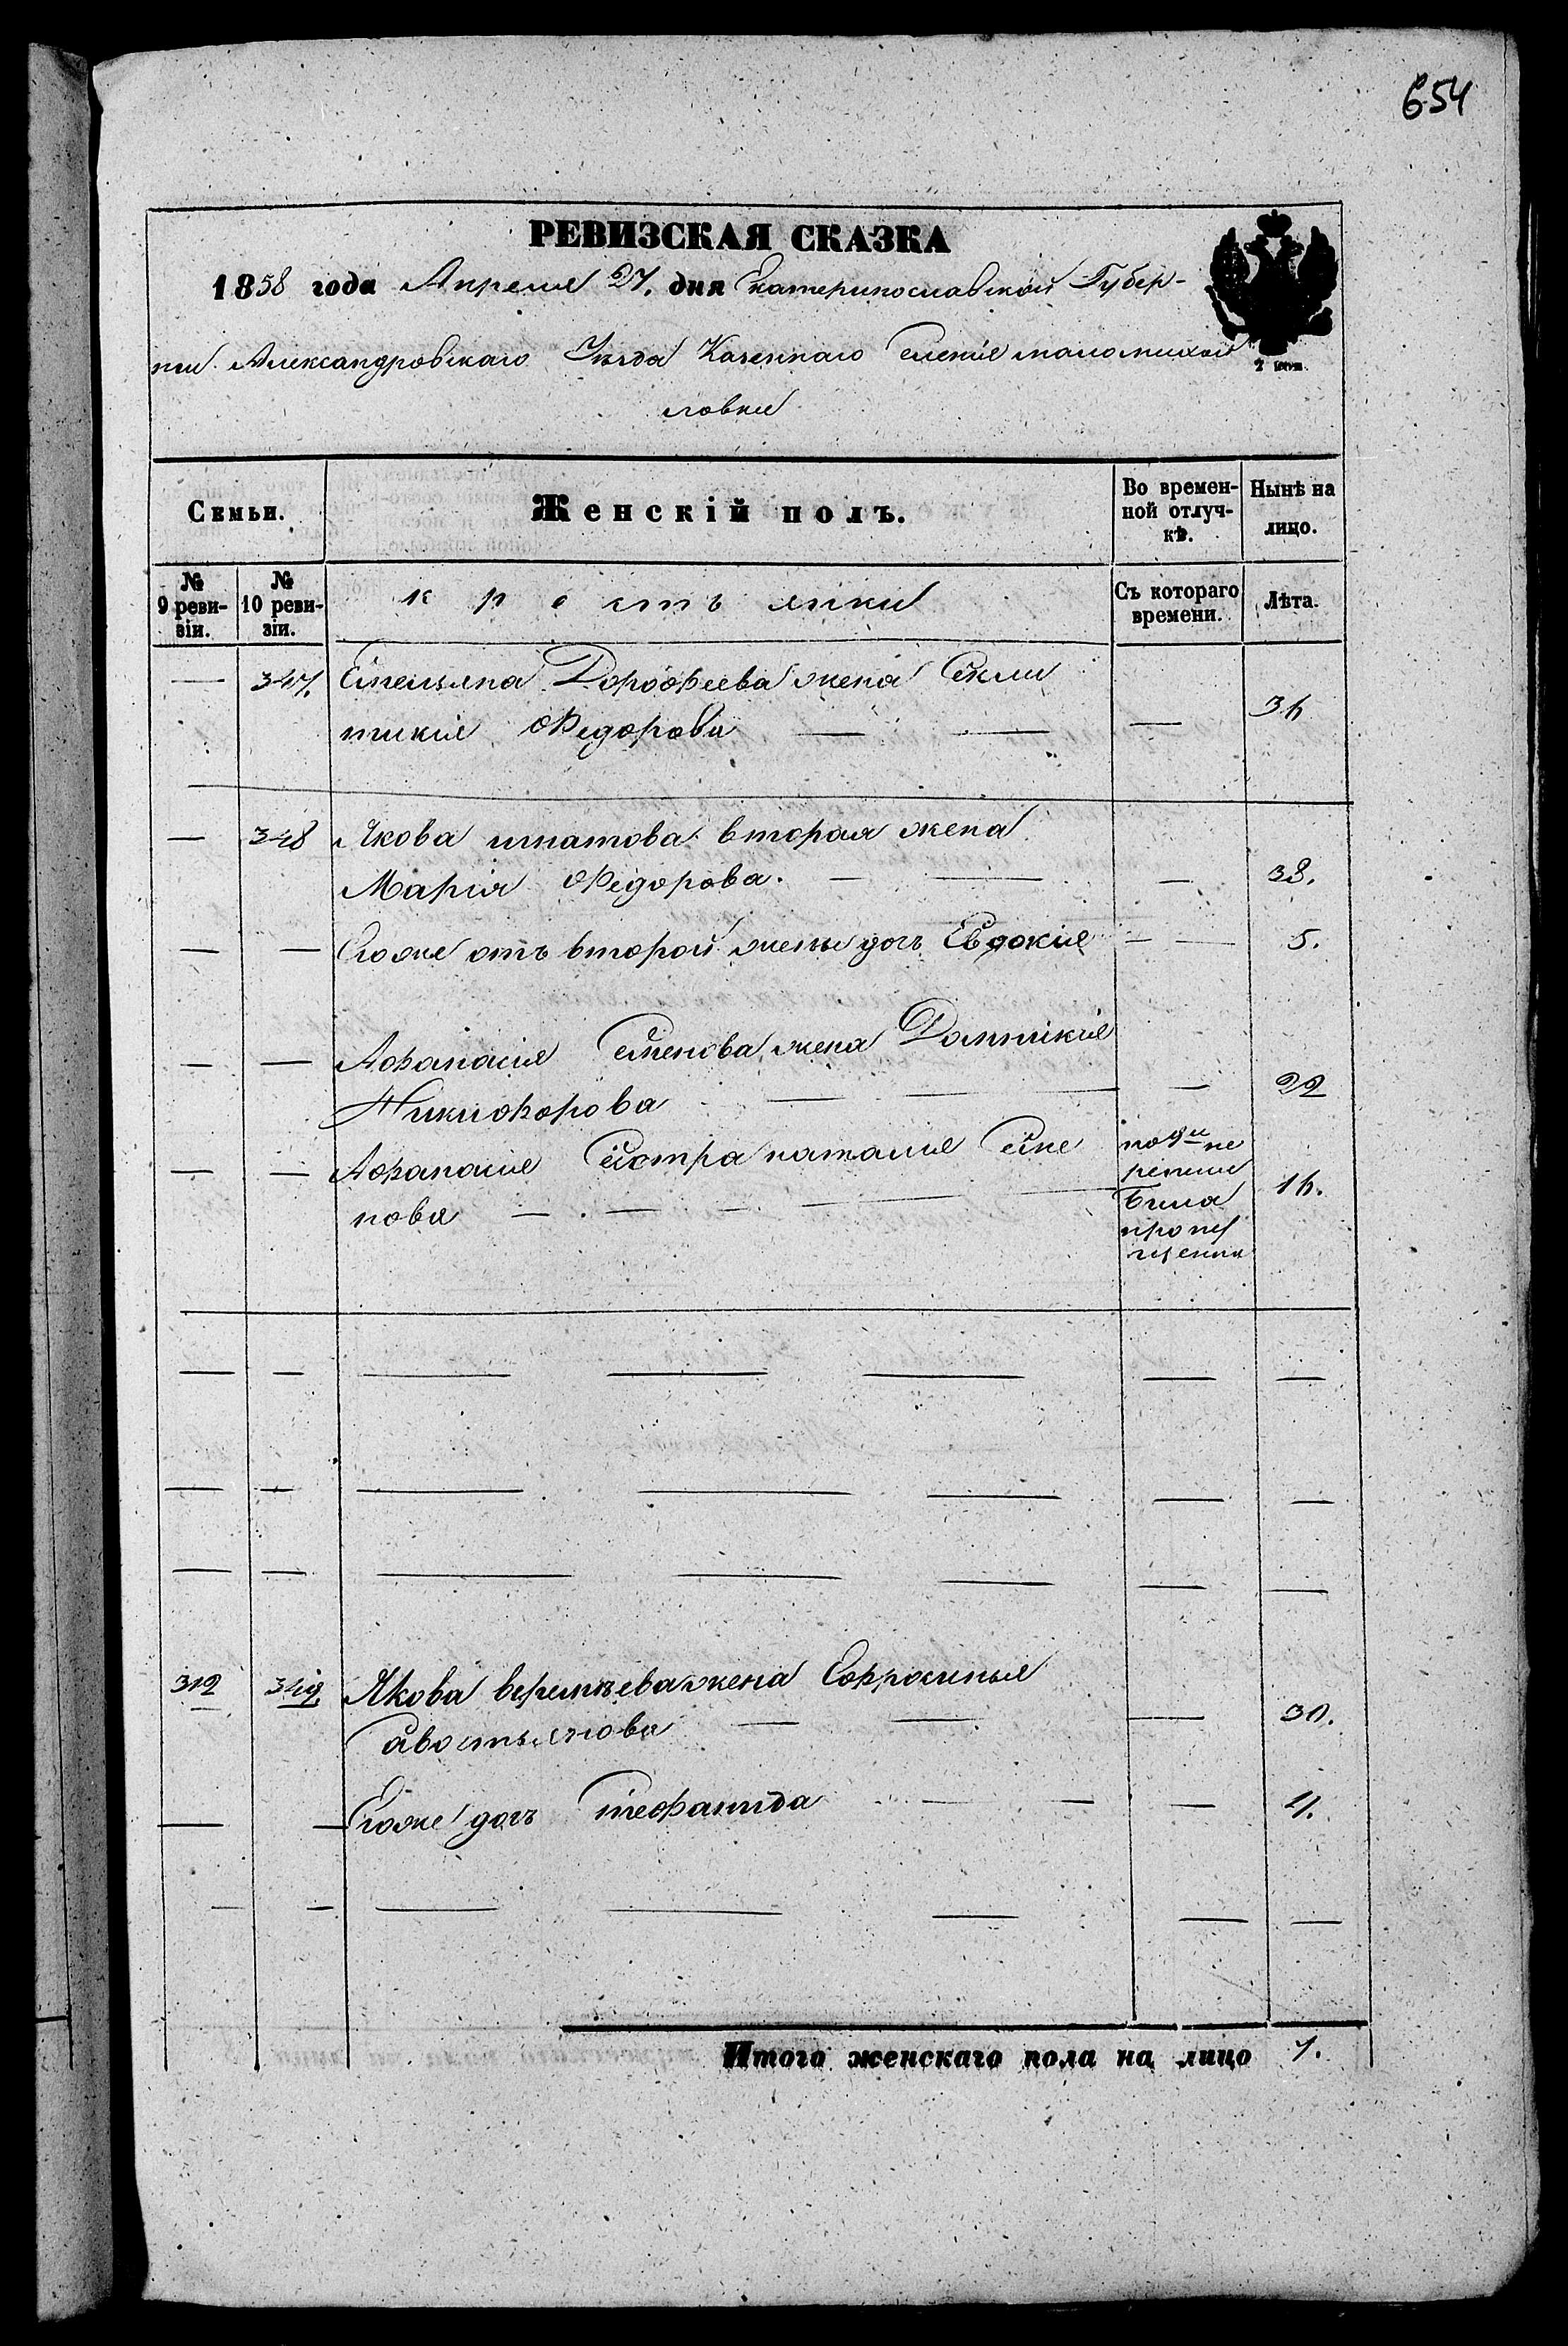 654
РЕВИЗСКАЯ СКАЗКА
1858 года Апреля 27. дня Екатеринославской Губер-
нии Александровскаго Уезда Казеннаго Селения маломихай
ловки
Семьи.
Женскій полъ.
Во времен-
ной отлуч-
кѣ.
Нынѣ на
лицо.
№
9 реви-
зіи.
№
10 реви-
зіи.
крестьянки
Съ котораго
времени.
Лѣта.
— 347. Емельяна Дорофеева жена Секли
тикия Федорова — — — 36
— 348 Якова игнатова вторая жена
Марія Федорова. — — — 38.
— — Егоже отъ второй жены дочь Евдокия — — 5.
— — Афанасия Семенова жена Домникия
Никифорова — — — 22
— — Афанасия Сестра наталия Семе
нова — — — —
по 9й ре
ревизии
Была
пропу
щенна
16.
312 349. Якова жена Ефросинья
Савостьянова — — — 30.
— — Егоже дочь — — — 4.
Итого женскаго пола на лицо 7.